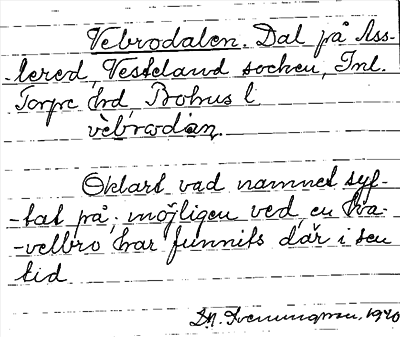 Vebrodalen. Dal på Ass-
-lered, Vesteland socken, Inl.
Torpe hrd, Bohus l
vèbrodàn.
Oklart vad namnet syf-
-tat på; möjligen ved en ka-
-vellbro har funnits där i sen
tid
1940